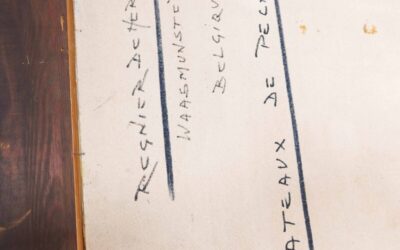 REGNIER DEHER
WAASMUNSTE
BELGIQU
ATEAUX DE PEC